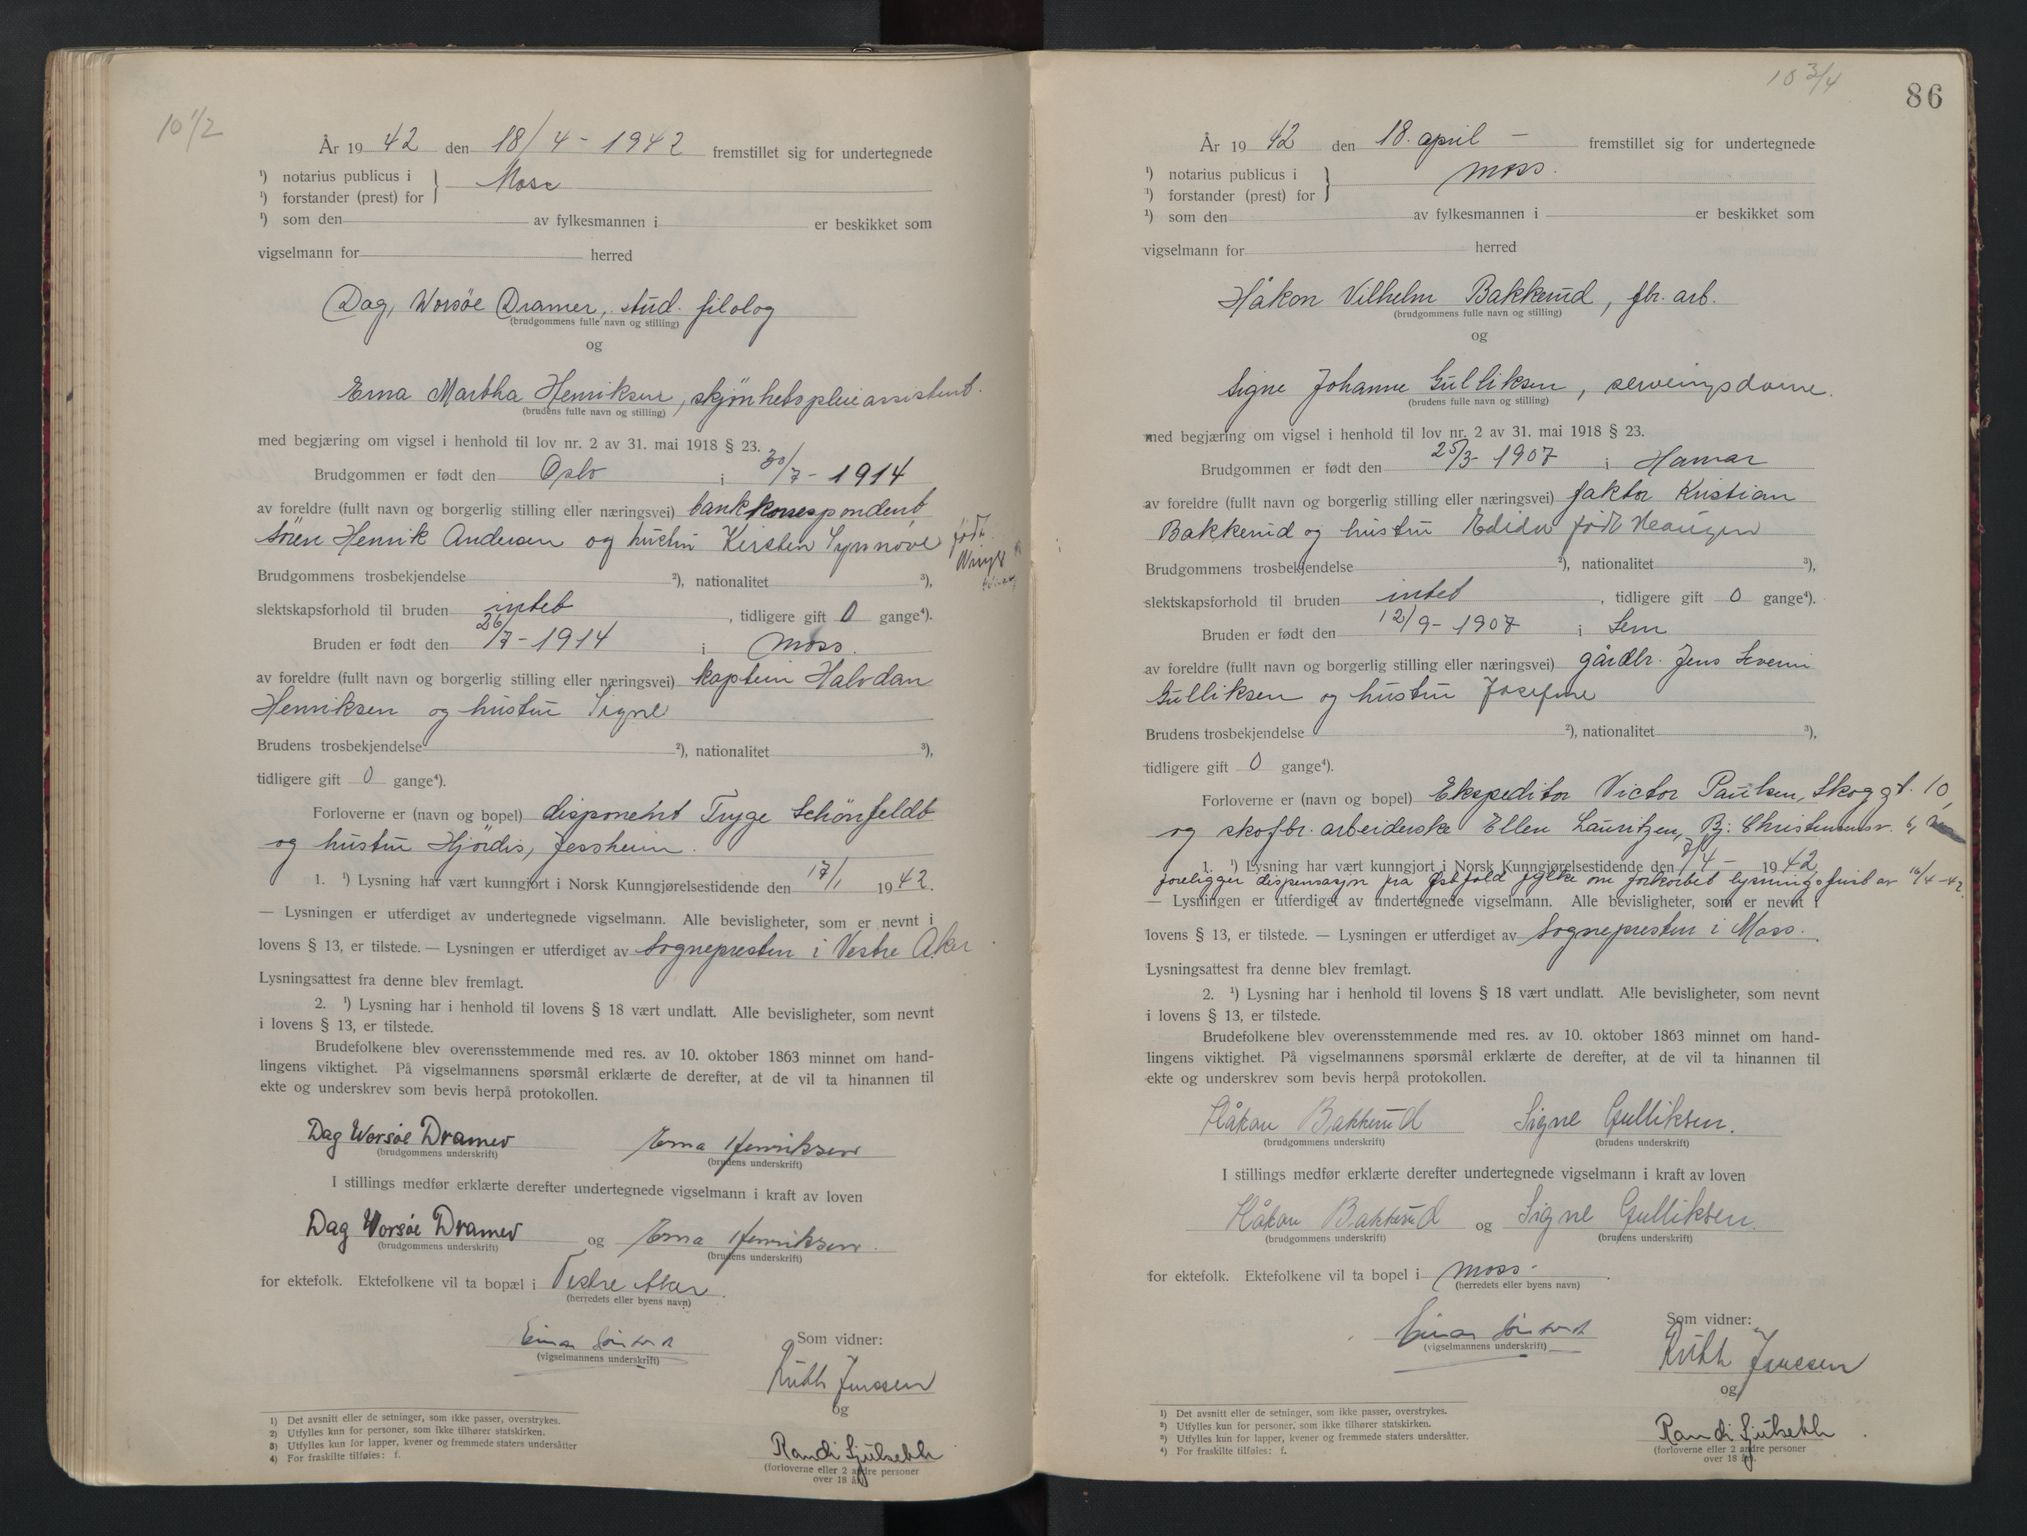 10 1/2
År 19 42 den 18/4 - 1942 fremstillet sig for undertegnede
¹) notarius publicus i
¹) forstander (prest) for } Moss
¹) som den av fylkesmannen i er beskikket som
vigselmann for herred
Dag, Worsöe Dramer, stud. filolog
(brudgommens fulle navn og stilling)
og
Erna Martha Henriksen, skjønhetspleieassistent.
(brudens fulle navn og stilling)
med begjæring om vigsel i henhold til lov nr. 2 av 31. mai 1918 § 23.
Brudgommen er født den Oslo i 30/7 - 1914
av foreldre (fullt navn og borgerlig stilling eller næringsvei) bankkorrespondent
Sören Henrik Andersen og hustru Kirsten Synnöve født
Brudgommens trosbekjendelse ²), nationalitet ³),
slektskapsforhold til bruden intet, tidligere gift 0 gange⁴).
Bruden er født den 26/7 - 1914 i Moss.
av foreldre (fullt navn og borgerlig stilling eller næringsvei) kaptein Halvdan
Henriksen og hustru Signe
Brudens trosbekjendelse ²), nationalitet ³),
tidligere gift 0 gange⁴).
Forloverne er (navn og bopel) disponent Tryge Schönfeldt
og hustru Hjördis, Jessheim.
1. ¹) Lysning har vært kunngjort i Norsk Kunngjørelsestidende den 17/1 1942.
— Lysningen er utferdiget av undertegnede vigselmann. Alle bevisligheter, som er nevnt i
lovens § 13, er tilstede. — Lysningen er utferdiget av Sognepresten i Vestre Aker
Lysningsattest fra denne blev fremlagt.
2. ¹) Lysning har i henhold til lovens § 18 vært undlatt. Alle bevisligheter, som nevnt
i lovens § 13, er tilstede.
Brudefolkene blev overensstemmende med res. av 10. oktober 1863 minnet om hand-
lingens viktighet. På vigselmannens spørsmål erklærte de derefter, at de vil ta hinannen til
ekte og underskrev som bevis herpå protokollen.
Dag Worsöe Dramer Erna Henriksen
(brudgommens underskrift) (brudens underskrift)
I stillings medfør erklærte derefter undertegnede vigselmann i kraft av loven
Dag Worsöe Dramer og Erna Henriksen
(brudgommens underskrift) (brudens underskrift)
for ektefolk. Ektefolkene vil ta bopæl i Vestre Aker
(herredets eller byens navn)
Som vidner:
Einar
(vigselmannens underskrift)
Ruth Jenssen
og
Randi Sjulsebk
(forloverne eller 2 andre personer
over 18 år.)
1) Det avsnitt eller de setninger, som ikke passer, overstrykes.
2) Utfylles kun for personer, som ikke tilhører statskirken.
3) Utfylles kun for lapper, kvener og fremmede staters undersåtter
4) For fraskilte tilføies: f.
10 3/4
86
År 19 42 den 18. april - fremstillet sig for undertegnede
¹) notarius publicus i
¹) forstander (prest) for } Moss.
¹) som den av fylkesmannen i er beskikket som
vigselmann for herred
Håkon Vilhelm Bakkerud, fbr. arb.
(brudgommens fulle navn og stilling)
og
Signe Johanne Gulliksen, serveringsdame.
(brudens fulle navn og stilling)
med begjæring om vigsel i henhold til lov nr. 2 av 31. mai 1918 § 23.
Brudgommen er født den 25/3 - 1907 i Hamar
av foreldre (fullt navn og borgerlig stilling eller næringsvei) faktor Kristian
Bakkerud og hustru født Haugen
Brudgommens trosbekjendelse ²), nationalitet ³),
slektskapsforhold til bruden intet, tidligere gift 0 gange⁴).
Bruden er født den 12/9 - 1907 i Sem
av foreldre (fullt navn og borgerlig stilling eller næringsvei) gårdbr. Jens Severin
Gulliksen og hustru Josefine
Brudens trosbekjendelse ²), nationalitet ³),
tidligere gift 0 gange⁴).
Forloverne er (navn og bopel) Ekspeditor Victor Paulsen, Skoggt. 10,
og skofbr. arbeiderske Ellen Lauritzen, Bj: Christensensv. 6,
1. ¹) Lysning har vært kunngjort i Norsk Kunngjørelsestidende den 7/4 - 1942
foreligger dispensasjon fra Østfold fylke om forkortet lysningsfrist av 16/4-42.
— Lysningen er utferdiget av undertegnede vigselmann. Alle bevisligheter, som er nevnt i
lovens § 13, er tilstede. — Lysningen er utferdiget av Sognepresten i Moss.
Lysningsattest fra denne blev fremlagt.
2. ¹) Lysning har i henhold til lovens § 18 vært undlatt. Alle bevisligheter, som nevnt
i lovens § 13, er tilstede.
Brudefolkene blev overensstemmende med res. av 10. oktober 1863 minnet om hand-
lingens viktighet. På vigselmannens spørsmål erklærte de derefter, at de vil ta hinannen til
ekte og underskrev som bevis herpå protokollen.
Håkon Bakkerud Signe Gulliksen.
(brudgommens underskrift) (brudens underskrift)
I stillings medfør erklærte derefter undertegnede vigselmann i kraft av loven
Håkon Bakkerud og Signe Gulliksen.
(brudgommens underskrift) (brudens underskrift)
for ektefolk. Ektefolkene vil ta bopel i Moss.
(herredets eller byens navn)
Som vidner:
Einar
(vigselmannens underskrift)
Ruth Jenssen
og
Randi Sjulsebk
(forloverne eller 2 andre personer
over 18 år.)
1) Det avsnitt eller de setninger, som ikke passer, overstrykes.
2) Utfylles kun for personer, som ikke tilhører statskirken.
3) Utfylles kun for lapper, kvener og fremmede staters undersåtter.
4) For fraskilte tilføies: f.